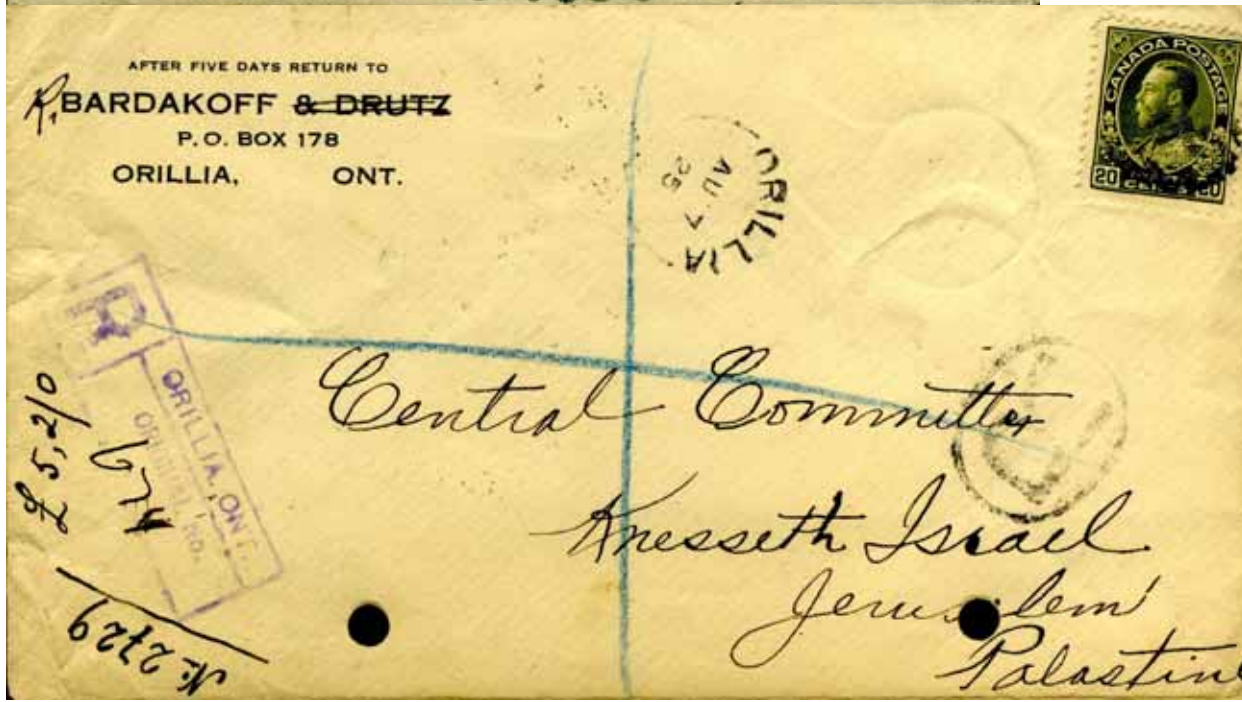 AFTER FIVE DAYS RETURN TO
R. BARDAKOFF & DRUTZ
P. O. BOX 178
ORILLIA, ONT.
CANADA POSTAGE
20 CENTS 20
ORILLIA
AU 7
25
R
ORILLIA, ONT.
ORIGINAL NO.
£ 5,2/0
Central Committee
Knesseth Israel
Jerusalem
Palastine
№ 2729